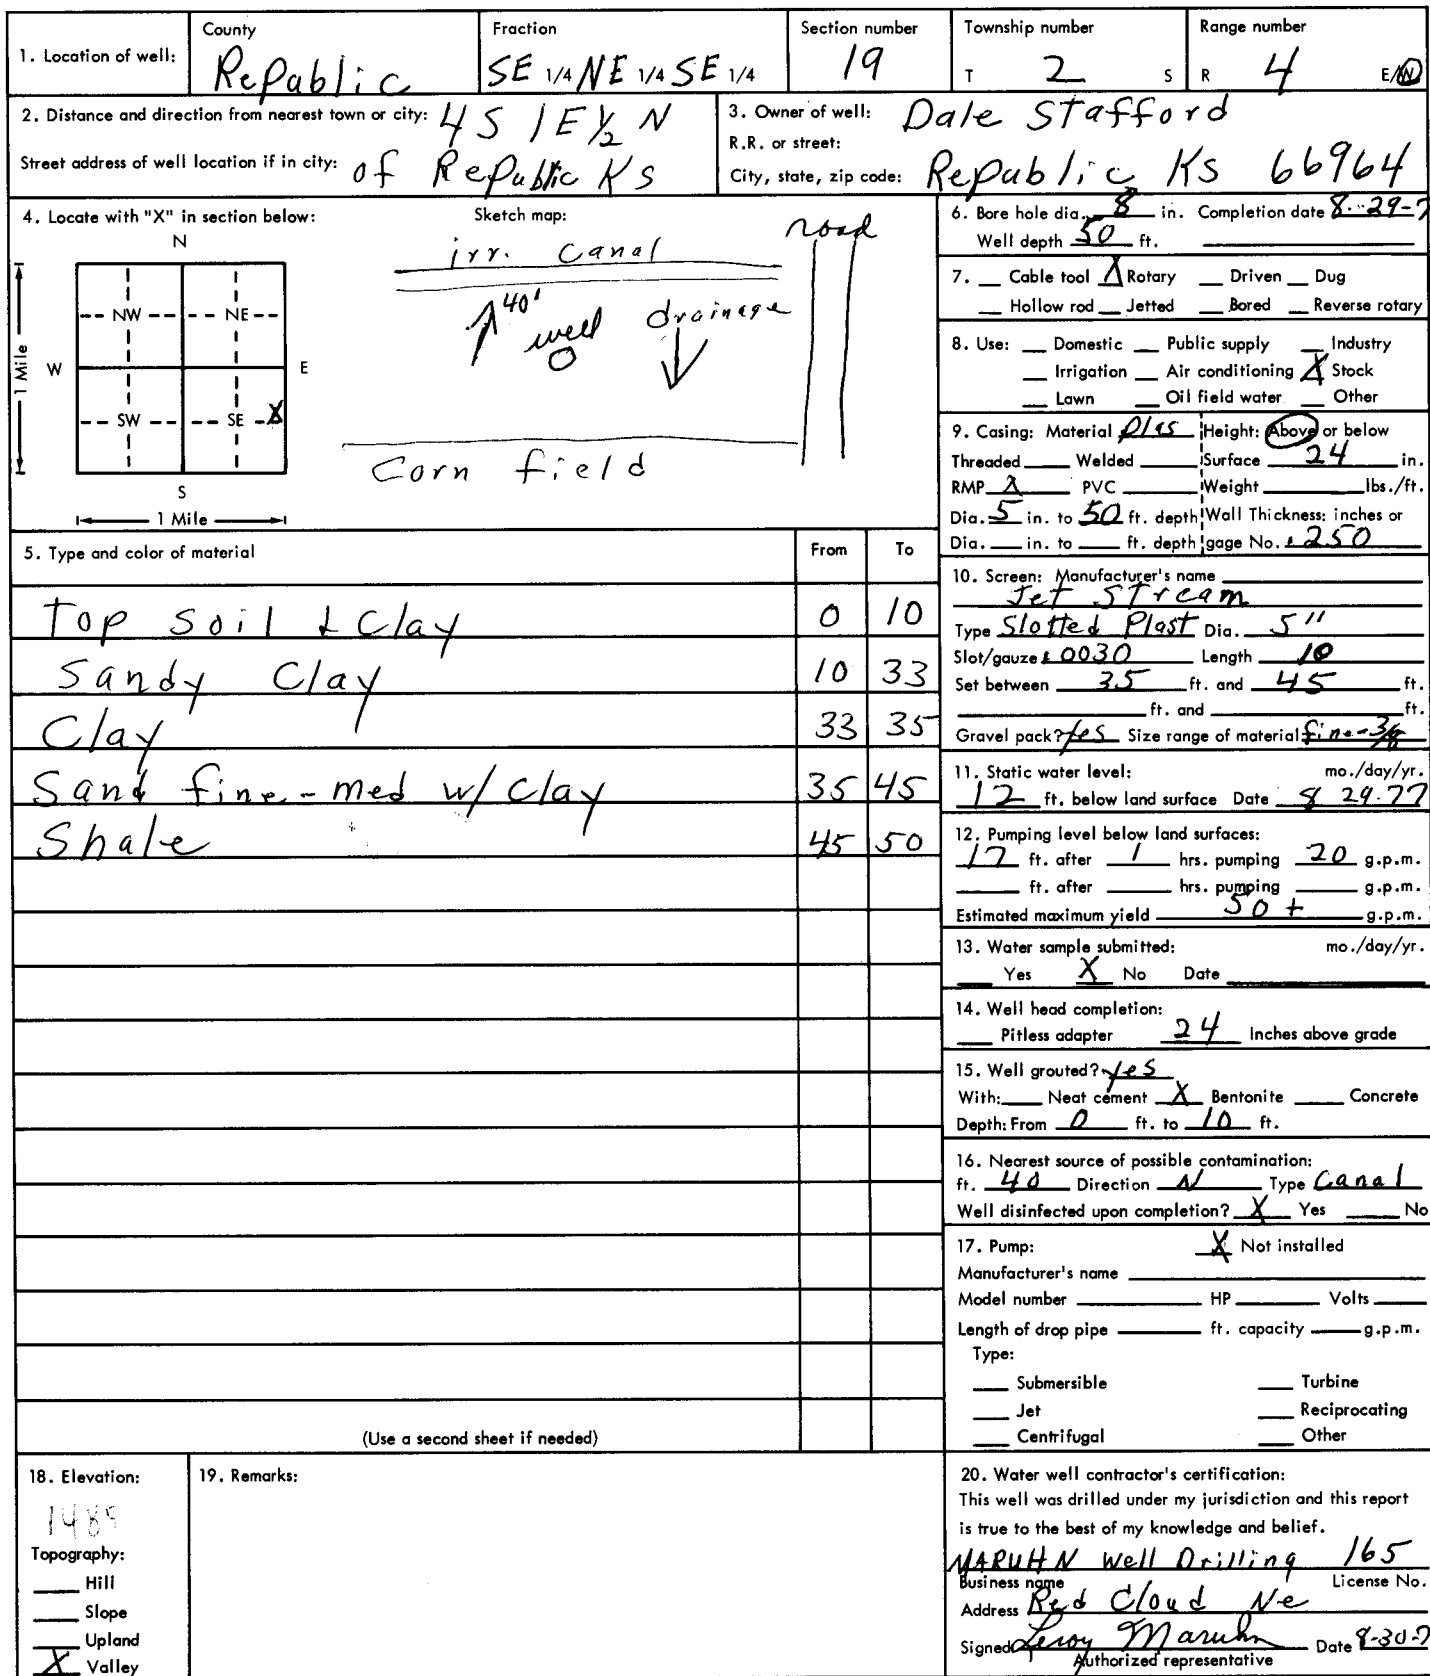 County Fraction Section number Township number Range number
1. Location of well: Republic SE 1/4 NE 1/4 SE 1/4 19 T 2 S R 4 E/W
2. Distance and direction from nearest town or city: 4 S 1 E 1/2 N
Street address of well location if in city: of Republic Ks
3. Owner of well: Dale Stafford
R.R. or street:
City, state, zip code: Republic Ks 66964
4. Locate with "X" in section below:
N
NW NE
W E
SW SE X
S
1 Mile
1 Mile
Sketch map:
road
irr. Canal
40'
well
drainage
Corn field
5. Type and color of material From To
Top Soil & Clay 0 10
Sandy Clay 10 33
Clay 33 35
Sand fine-med w/ Clay 35 45
Shale 45 50
(Use a second sheet if needed)
6. Bore hole dia. 8 in. Completion date 8-29-7
Well depth 50 ft.
7. Cable tool X Rotary Driven Dug
Hollow rod Jetted Bored Reverse rotary
8. Use: Domestic Public supply Industry
Irrigation Air conditioning X Stock
Lawn Oil field water Other
9. Casing: Material Plas Height: Above or below
Threaded Welded Surface 24 in.
RMP X PVC Weight lbs./ft.
Dia. 5 in. to 50 ft. depth Wall Thickness: inches or
Dia. in. to ft. depth gage No. .250
10. Screen: Manufacturer's name
Jet Stream
Type Slotted Plast Dia. 5"
Slot/gauze .0030 Length 10
Set between 35 ft. and 45 ft.
ft. and ft.
Gravel pack? Yes Size range of material fine-3/8
11. Static water level: mo./day/yr.
12 ft. below land surface Date 8 29-77
12. Pumping level below land surfaces:
17 ft. after 1 hrs. pumping 20 g.p.m.
ft. after hrs. pumping g.p.m.
Estimated maximum yield 50+ g.p.m.
13. Water sample submitted: mo./day/yr.
Yes X No Date
14. Well head completion:
Pitless adapter 24 Inches above grade
15. Well grouted? yes
With: Neat cement X Bentonite Concrete
Depth: From 0 ft. to 10 ft.
16. Nearest source of possible contamination:
ft. 40 Direction N Type Canal
Well disinfected upon completion? X Yes No
17. Pump: X Not installed
Manufacturer's name
Model number HP Volts
Length of drop pipe ft. capacity g.p.m.
Type:
Submersible Turbine
Jet Reciprocating
Centrifugal Other
18. Elevation:
Topography:
Hill
Slope
Upland
X Valley
19. Remarks:
20. Water well contractor's certification:
This well was drilled under my jurisdiction and this report
is true to the best of my knowledge and belief.
MARUHN Well Drilling 165
Business name License No.
Address Red Cloud Ne
Signed Leroy Maruhn Date 8-30-7
Authorized representative